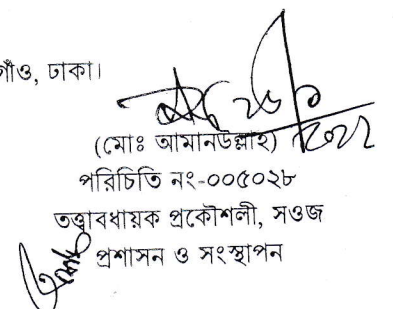 গাঁও, ঢাকা।
(মোঃ আমানউল্লাহ)
পরিচিতি নং-০০৫০২৮
তত্ত্বাবধায়ক প্রকৌশলী, সওজ
প্রশাসন ও সংস্থাপন